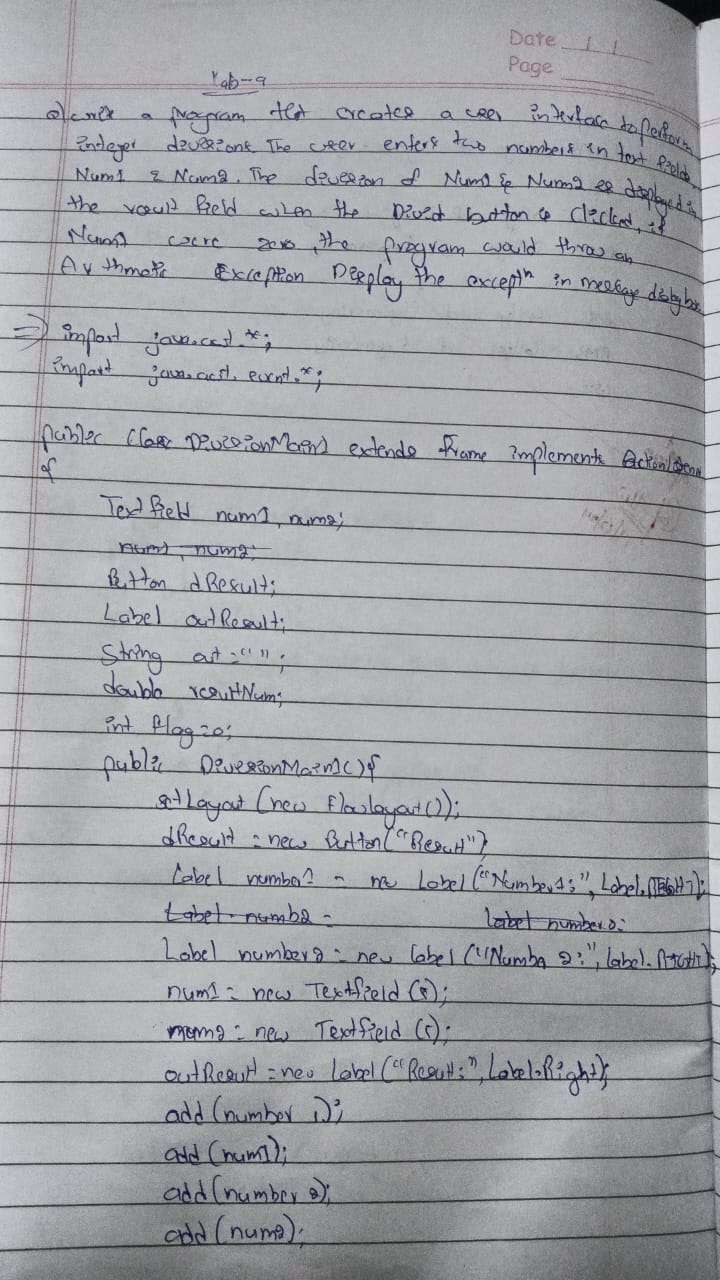 Date / /
Page
Lab-9
a) write a program that creates a user interface to perform
integer divisions. The user enters two numbers in text fields
Num1 & Num2. The division of Num1 & Num2 is displayed in
the result field when the Divid button is clicked, if
Num2 were zero, the program would throw an
Arthmatic Exception Display the exceptn in message dialog box
=> import java.awt.*;
import java.awt.event.*;
public class DivisionMain1 extends Frame implements Action
{
TextField num1, num2;
num1, num2;
Button dResult;
Label outResult;
String out = "";
double resultNum;
int flag=0;
public DivisionMain1(){
setLayout (new Flowlayout());
dResult = new Button("Result")
Label number1 = new Label ("Number1:", Label.RIGHT);
Label numb2 = Label number2:
Label number2 = new Label ("Numba 2:", label.RIGHT);
num1 = new Textfield (5);
num2 = new Textfield (5);
outResult = new Label ("Result:", Label.Right);
add (number 1);
add (num1);
add (number 2);
add (num2);